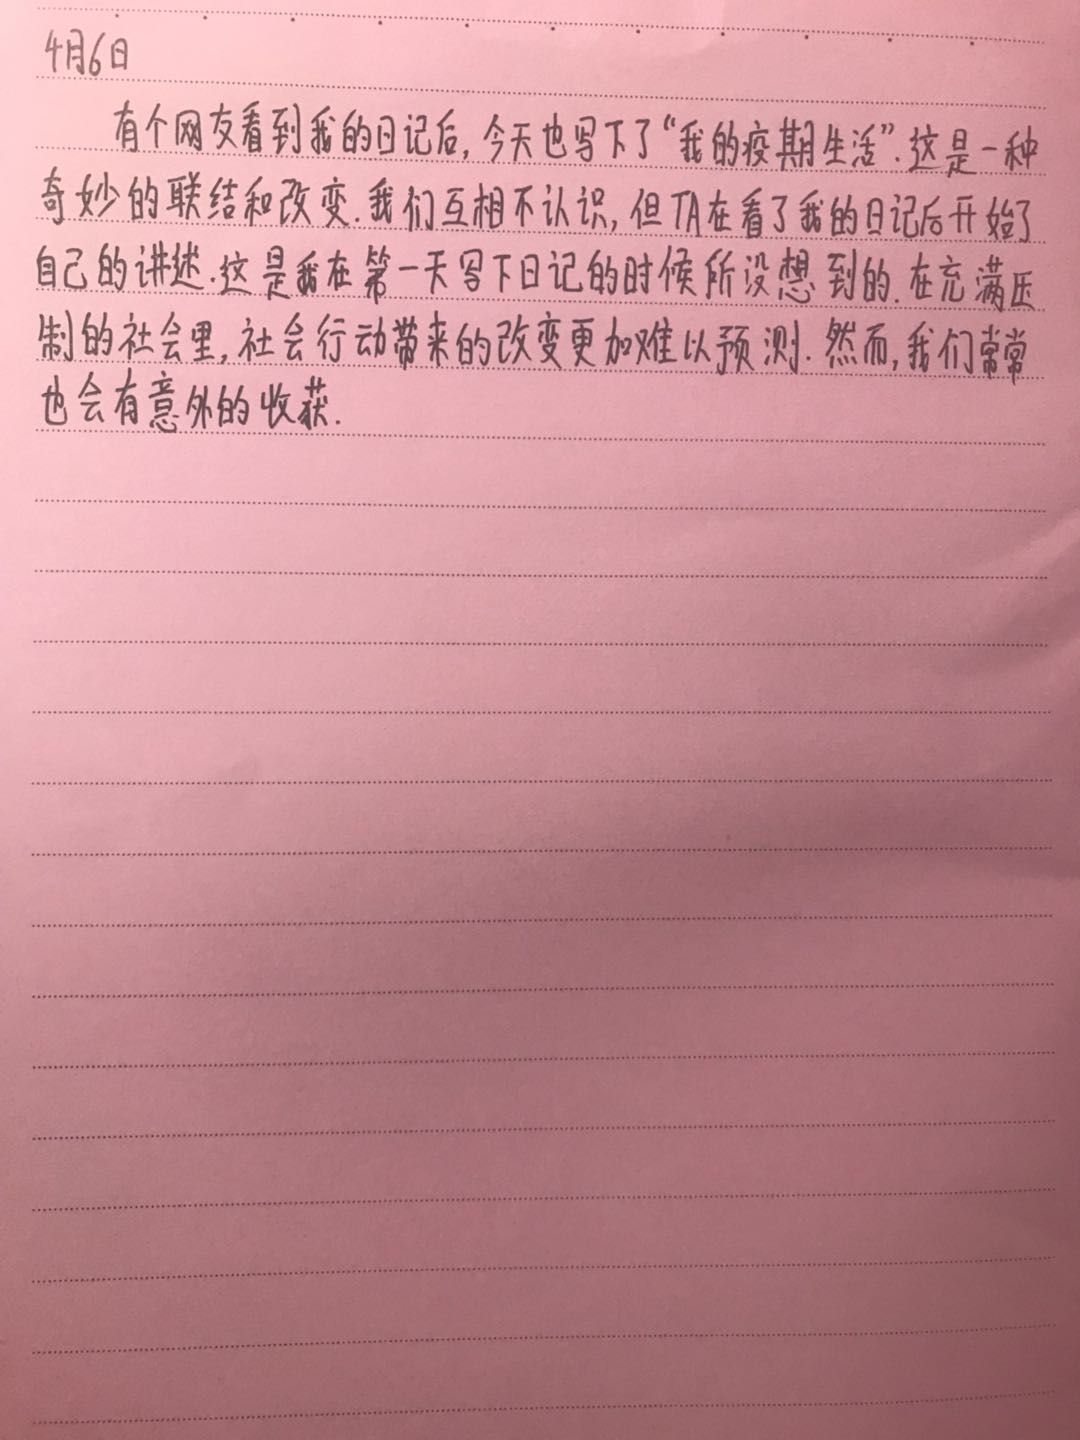 4月6日
有个网友看到我的日记后,今天也写下了“我的疫期生活”.这是一种
奇妙的联结和改变.我们互相不认识,但TA在看了我的日记后开始了
自己的讲述.这是我在第一天写下日记的时候所没想到的.在充满压
制的社会里,社会行动带来的改变更加难以预测.然而,我们常常
也会有意外的收获.